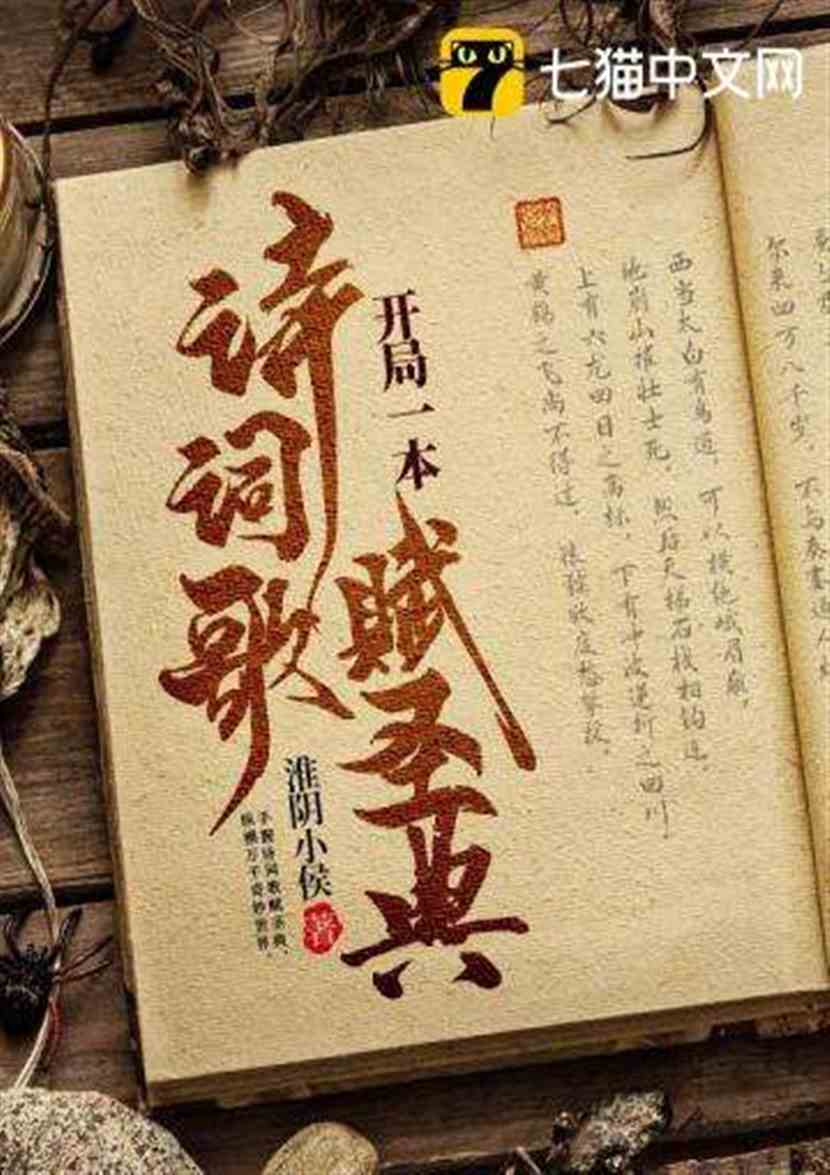 七猫中文网
开局一本
诗词歌
赋圣典
淮阴小侯
著
手握诗词歌赋圣典，
纵横万千奇妙世界。
尔来四万八千岁，不与秦塞通人烟
西当太白有鸟道，可以横绝峨眉巅。
地崩山摧壮士死，然后天梯石栈相钩连。
上有六龙回日之高标，下有冲波逆折之回川
黄鹤之飞尚不得过，猿猱欲度愁攀援。